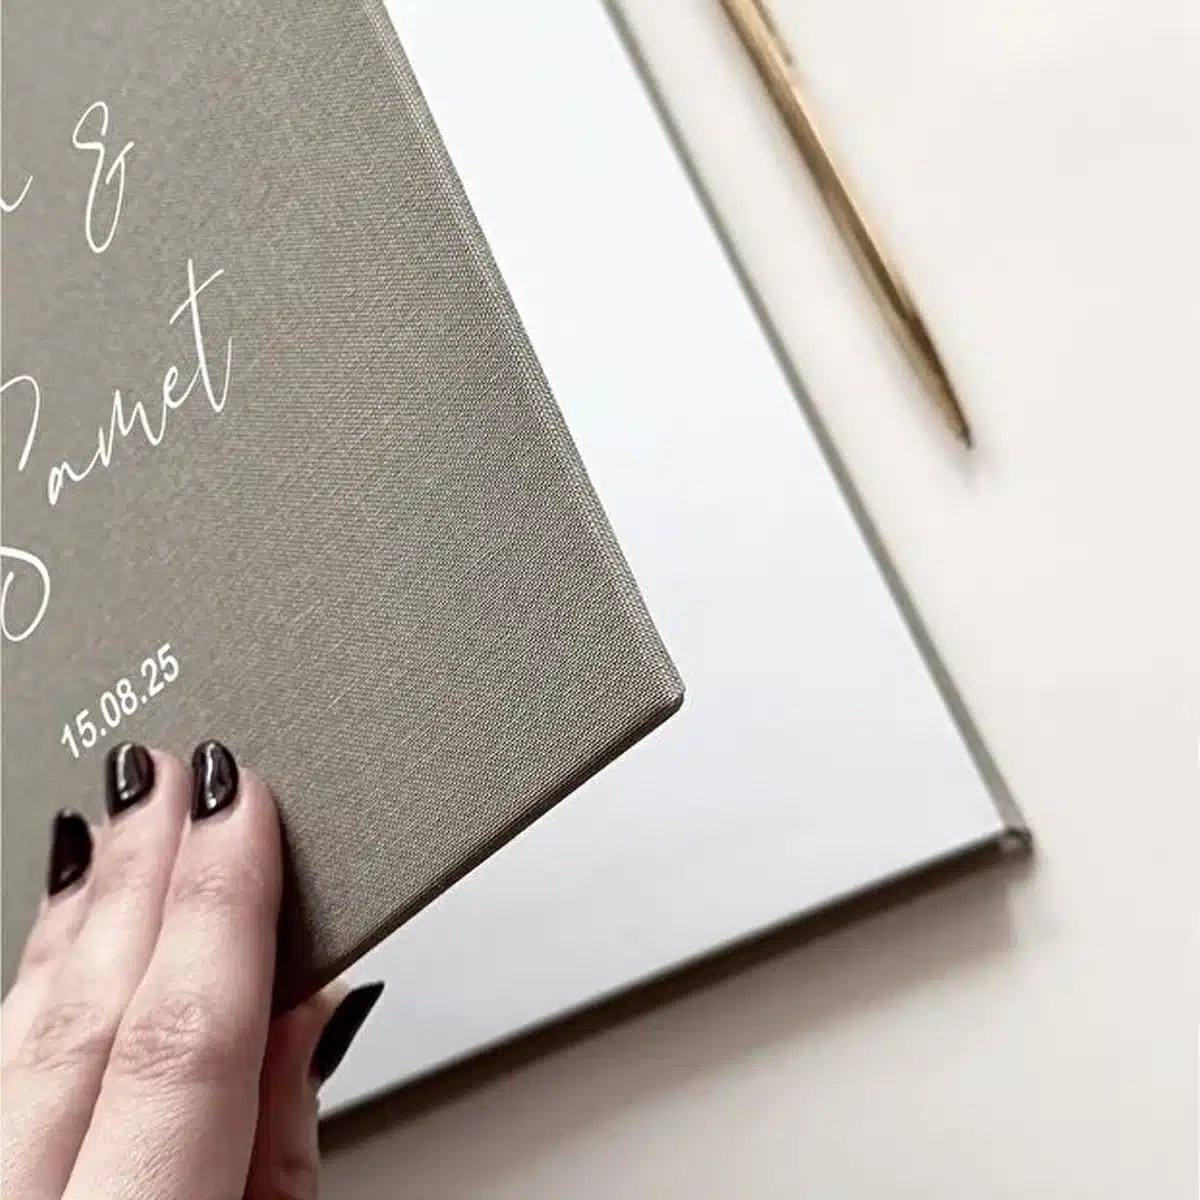 &
Samet
15.08.25